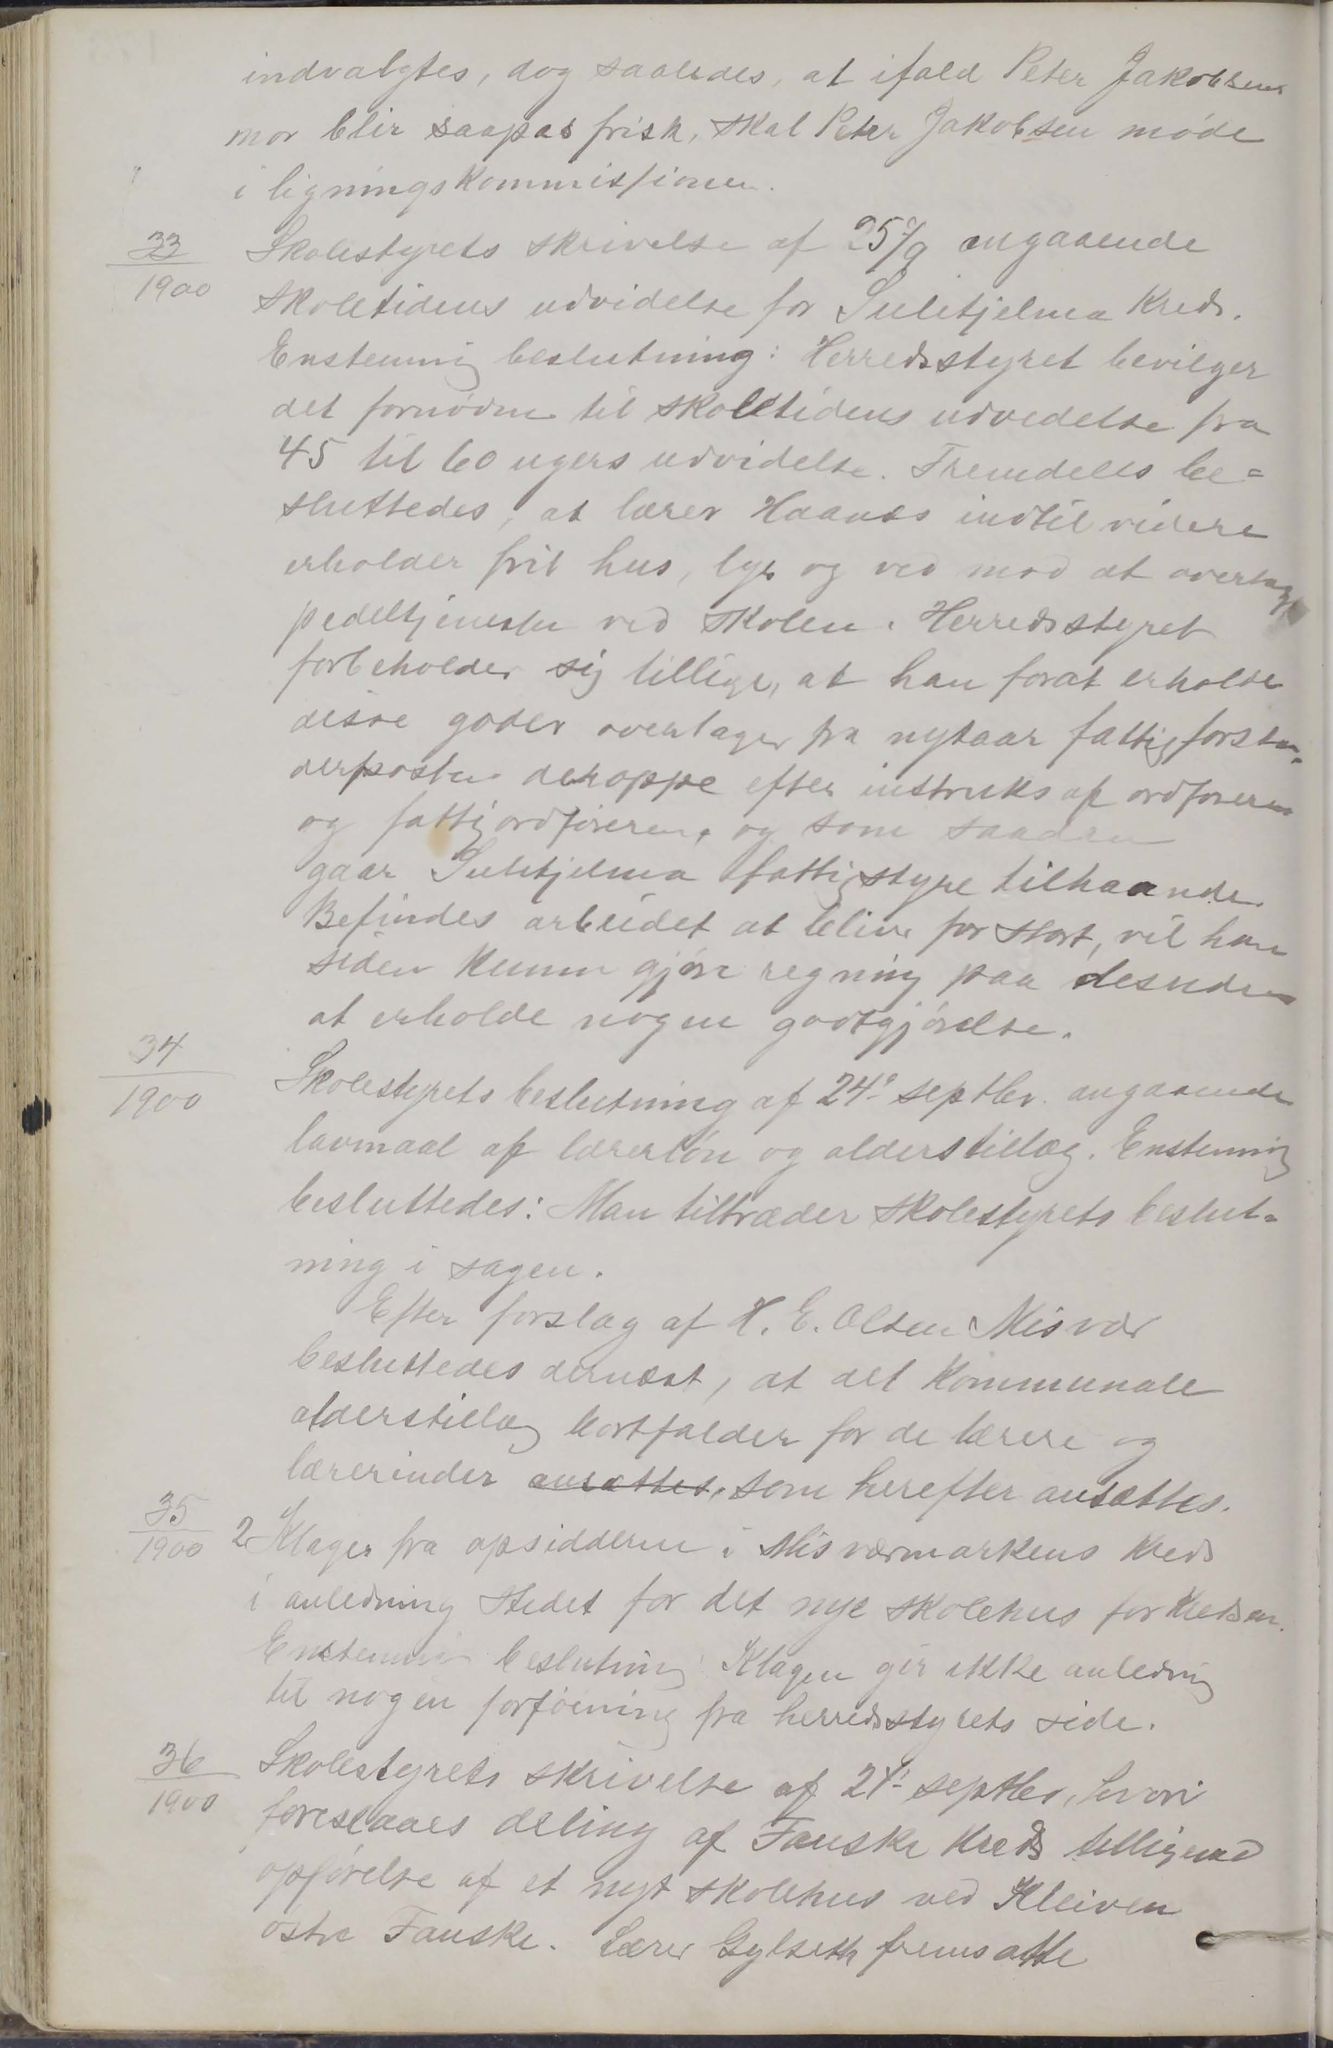 indvalgtes, dog saaledes, at ifald Peter Jakobsens
mor blir saapas frisk, skal Peter Jakobsen møde
i ligningskommissionen.
33/1900 Skolestyrets skrivelse af 25/9 angaaende
skoletidens udvidelse for Sulitjelma kreds.
Enstemmig beslutning: Herredsstyret bevilger
det fornødne til skoletidens udvedelse fra
45 til 60 ugers udvidelse. Fremdeles be=
sluttedes, at lærer Haanes indtil videre
erholder frit hus, lys og ved mod at overtage
pedeltjenesten ved skolen. Herredsstyret
forbeholder sig tillige, at han forat erholde
disse goder overtager fra nytaar fattigforstan-
derposten deroppe efter instruks af ordføreren
og fattigordføreren, og som saadan
gaar Sulitjelma fattigstyre tilhaande.
Befindes arbeidet at blive for stort, vil han
siden kunne gjøre regning paa desuden
at erholde nogen godtgjørelse.
34/1900 Skolestyrets beslutning af 24de septbr. angaaende
lavmaal af lærerløn og alderstillæg. Enstemmig
besluttedes: Man tiltræder skolestyrets beslut-
ning i sagen.
Efter forslag af H. E. Olsen Misvær
besluttedes dernæst, at det kommunale
alderstillæg bortfalder for de lærere og
lærerinder ansættes, som herefter ansættes.
35/1900 2 Klager fra opsidderne i Misværmarkens kreds
i anledning stedet for det nye skolehus for kredsen.
Enstemmig beslutning: Klagen gir ikke anledning
til nogen forføining fra herredsstyrets side.
36/1900 Skolestyrets skrivelse af 24de septbr, hvori
foreslaaes deling af Fauske kreds tilligemed
opførelse af et nyt skolehus ved Kleiven
østre Fauske. Lærer Gylseth fremsatte